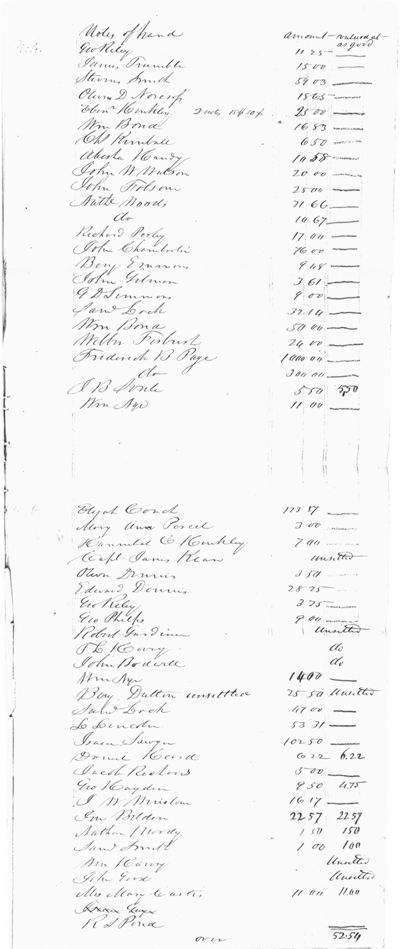 Notes of hand amount valued at as good
Geo Riley 11 25
James Trumble 15 00
Stevens Smith 59 03
Oliver D Norcross 18 65
Eben Hinkley 2 notes 25 00
Wm Bond 16 83
Chs Kimball 6 50
Abisha Handy 10 58
John W Watson 20 00
John Folsom 25 00
Nathl Woods 21 66
do 10 67
Richard Perley 17 00
John Chamberlin 76 00
Benj Emmons 9 48
John Gilman 3 61
G D Simmons 9 00
Saml Lock 32 14
Wm Bond 50 00
Wilbr Forbush 24 00
Frederick B Page 1000 00
do 300 00
J B Soule 5 50 5,50
Wm Nye 11 00
Elijah Couch 123 87
Mary Ann Percel 3 00
Hannibal C Hinkley 7 00
Capt James Kean unsettled
Owen Dennis 3 50
Edward Dennis 28 25
Geo Riley 3 25
Geo Phelps 9 00
Robert Gardiner Unsettled
T L Harvy do
John Boderell do
Wm Nye 14 00
Benj Dutton unsettled 25 50 Unsettled
Saml Lock 47 00
L Lincoln 53 31
Isaac Sawyer 102 50
Daniel Heard 6 22 6.22
Jacob Rickords 5 00
Geo Hayden 9 50 4.75
J W Winslow 16 17
Jm Belden 22 57 22.57
Nathan Moody 1 50 1 50
Saml Smith 1 00 1 00
Wm Harvy Unsettled
John Good Unsettled
Mrs Mary Carter 11 00 11.00
R S Perd
over 52.54